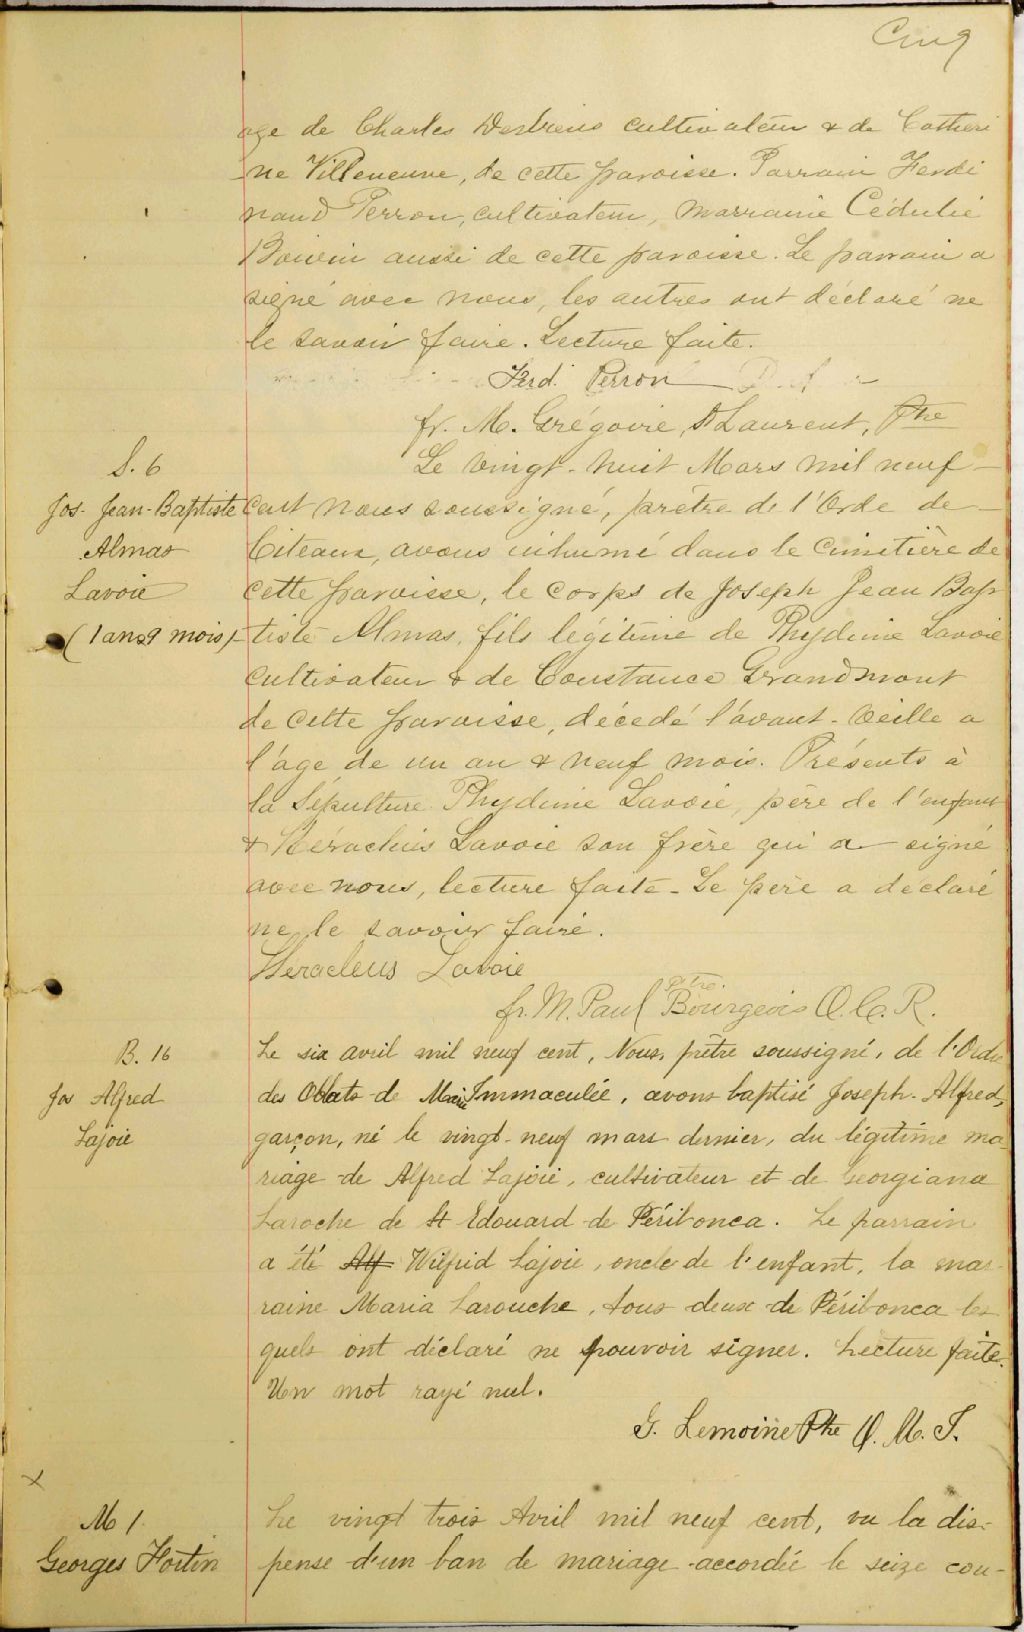 Cinq
age de Charles Desbiens cultivateur & de Catheri
ne Villeneuve, de cette paroisse. Parrain Ferdi
nand Perron, cultivateur, marraine Cédulie
Boivin aussi de cette paroisse. Le parrain a
signé avec nous, les autres ont déclaré ne
le savoir faire. Lecture faite.
Ferd. Perron
fr. M. Grégoire, St Laurent, Ptre
S. 6
Jos. Jean-Baptiste
Almas
Lavoie
(1 an & 9 mois)
Le vingt-huit Mars mil neuf
cent nous soussigné, prêtre de l'Orde de
Citeaux, avons inhumé dans le cimetière de
cette paroisse, le corps de Joseph Jean Bap
tiste Almas, fils légitime de Phydime Lavoie
cultivateur & de Constance Grandmont
de cette paroisse, décedé l'avant-veille a
l'âge de un an & neuf mois. Présents à
la Sépulture Phydime Lavoie, père de l'enfant
& Héraclius Lavoie son frère qui a signé
avec nous, lecture faite - Le père a déclaré
ne le savoir faire.
Héracleus Lavoie
fr. M. Paul Bourgeois ptre. O. C. R.
B. 16
Jos Alfred
Lajoie
Le six avril mil neuf cent, Nous, prêtre soussigné, de l'Ordre
des Oblats de Marie Immaculée, avons baptisé Joseph-Alfred,
garçon, né le vingt-neuf mars dernier, du légitime ma-
riage de Alfred Lajoie, cultivateur et de Georgiana
Laroche de St Edouard de Péribonca. Le parrain
a été Alf Wilfrid Lajoie, oncle de l'enfant, la mar-
raine Maria Larouche, tous deux de Péribonca les
quels ont déclaré ne pouvoir signer. Lecture faite.
Un mot rayé nul.
G. Lemoine Ptre O. M. I.
x
M 1.
Georges Fortin
Le vingt trois Avril mil neuf cent, vu la dis-
pense d'un ban de mariage accordée le seize cou-